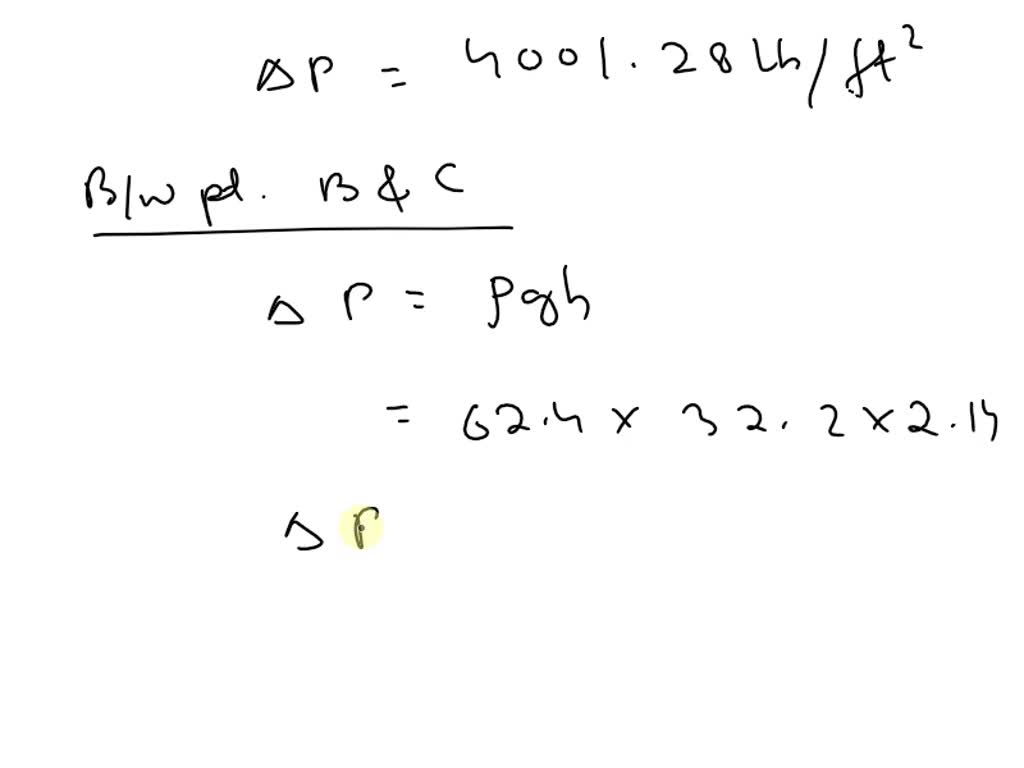 ΔP = 4001.28 lb/ft²
B/w pt. B & C
ΔP = ρgh
= 62.4 × 32.2 × 2.14
ΔP